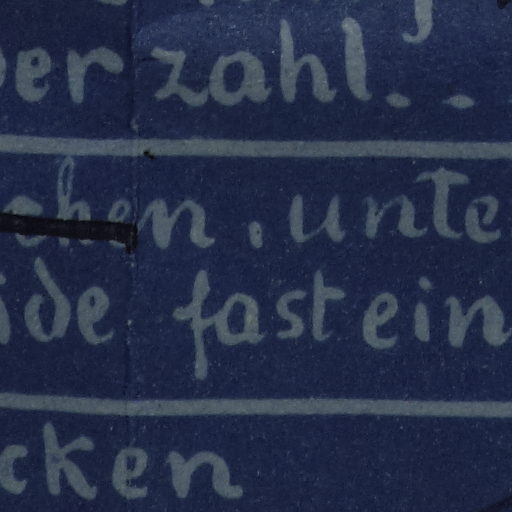 der zahl..
chen. unte
ide fast ein
cken